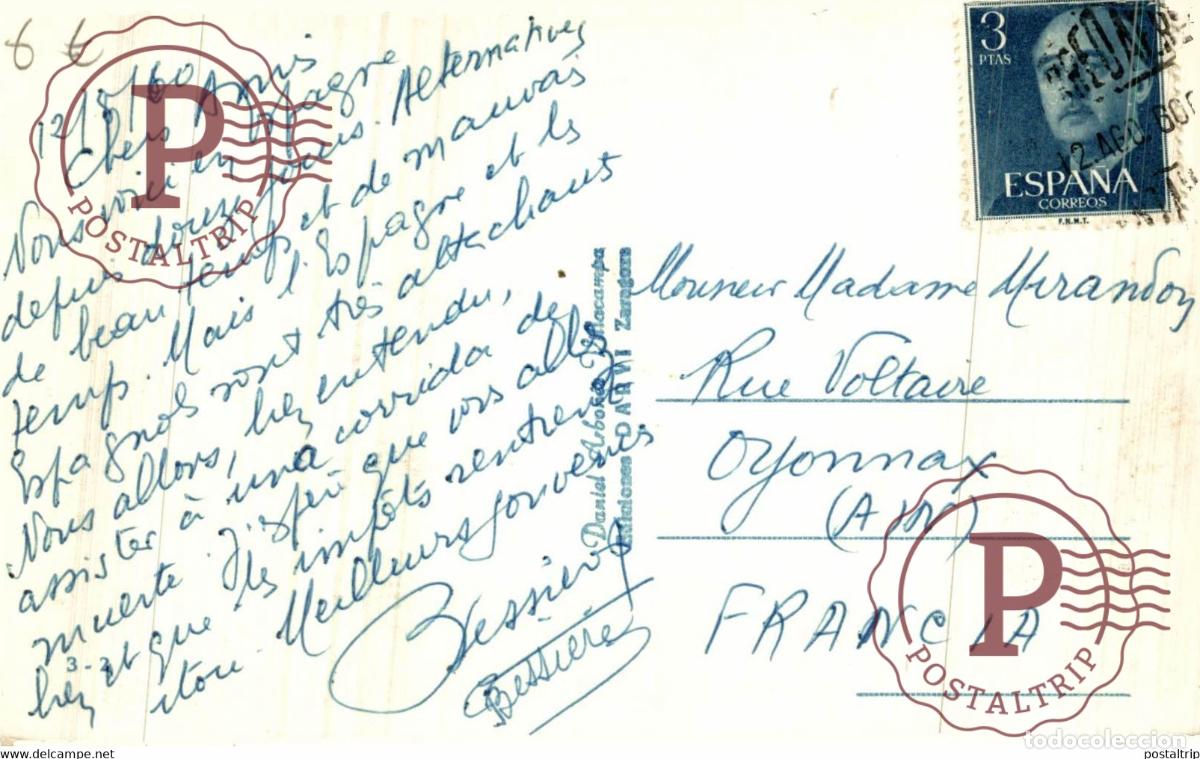 6 €
12/8/60
Chers Amis
Nous voici en Espagne
depuis douze jours. Alternatives
de beau temps et de mauvais
temps. Mais l'Espagne et les
Espagnols sont très attachants
Nous allons, bien entendu,
assister à una corrida de
muerte. J'espère que vous allez
bien et que les impôts rentrent
Meilleurs souvenirs
Bessière
Bessiere
3-2
Daniel Arbonés Villacampa
Ediciones DARVI Zaragoza
3
PTAS
ESPAÑA
CORREOS
F.N.M.T.
12.AGO.60
Monsieur Madame Mirandon
Rue Voltaire
Oyonnax
(Ain)
FRANCIA
P
POSTALTRIP
P
POSTALTRIP
todocoleccion
www.delcampe.net
postaltrip